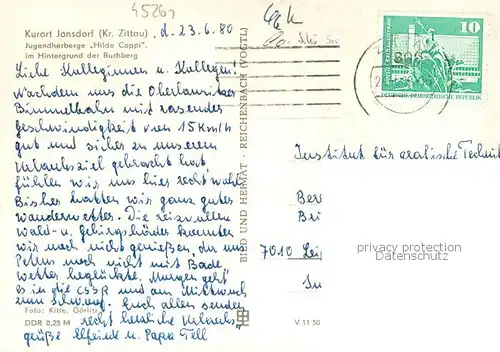 45269
Kurort Jonsdorf (Kr. Zittau)
Jugendherberge „Hilde Coppi",
im Hintergrund der Buchberg
d. 23.6.80
Liebe Kolleginnen u. Kollegen!
Nachdem uns die Oberlausitzer
Bimmelbahn mit rasender
Geschwindigkeit von 15 Km/h
gut und sicher zu unserem
Urlaubsziel gebracht hat,
fühlen wir uns hier recht wohl.
Bisher hatten wir ganz gutes
Wanderwetter. Die reizvollen
Wald- u. Gebirgsbäder konnten
wir noch nicht genießen, da uns
Petrus noch nicht mit Bade
wetter beglückte. Morgen geht
es in die CSSR und am Mittwoch
zum Euch allen senden
Foto: Kitte, Görlitz
recht herzliche Urlaubs-
DDR 0,25 M
grüße Elfriede u. Papa Tell
BILD UND HEIMAT · REICHENBACH (VOGTL)
V 11 50
10
DEUTSCHE DEMOKRATISCHE REPUBLIK
Institut für
7010
www.ansichtskartenversand.com
Copyright